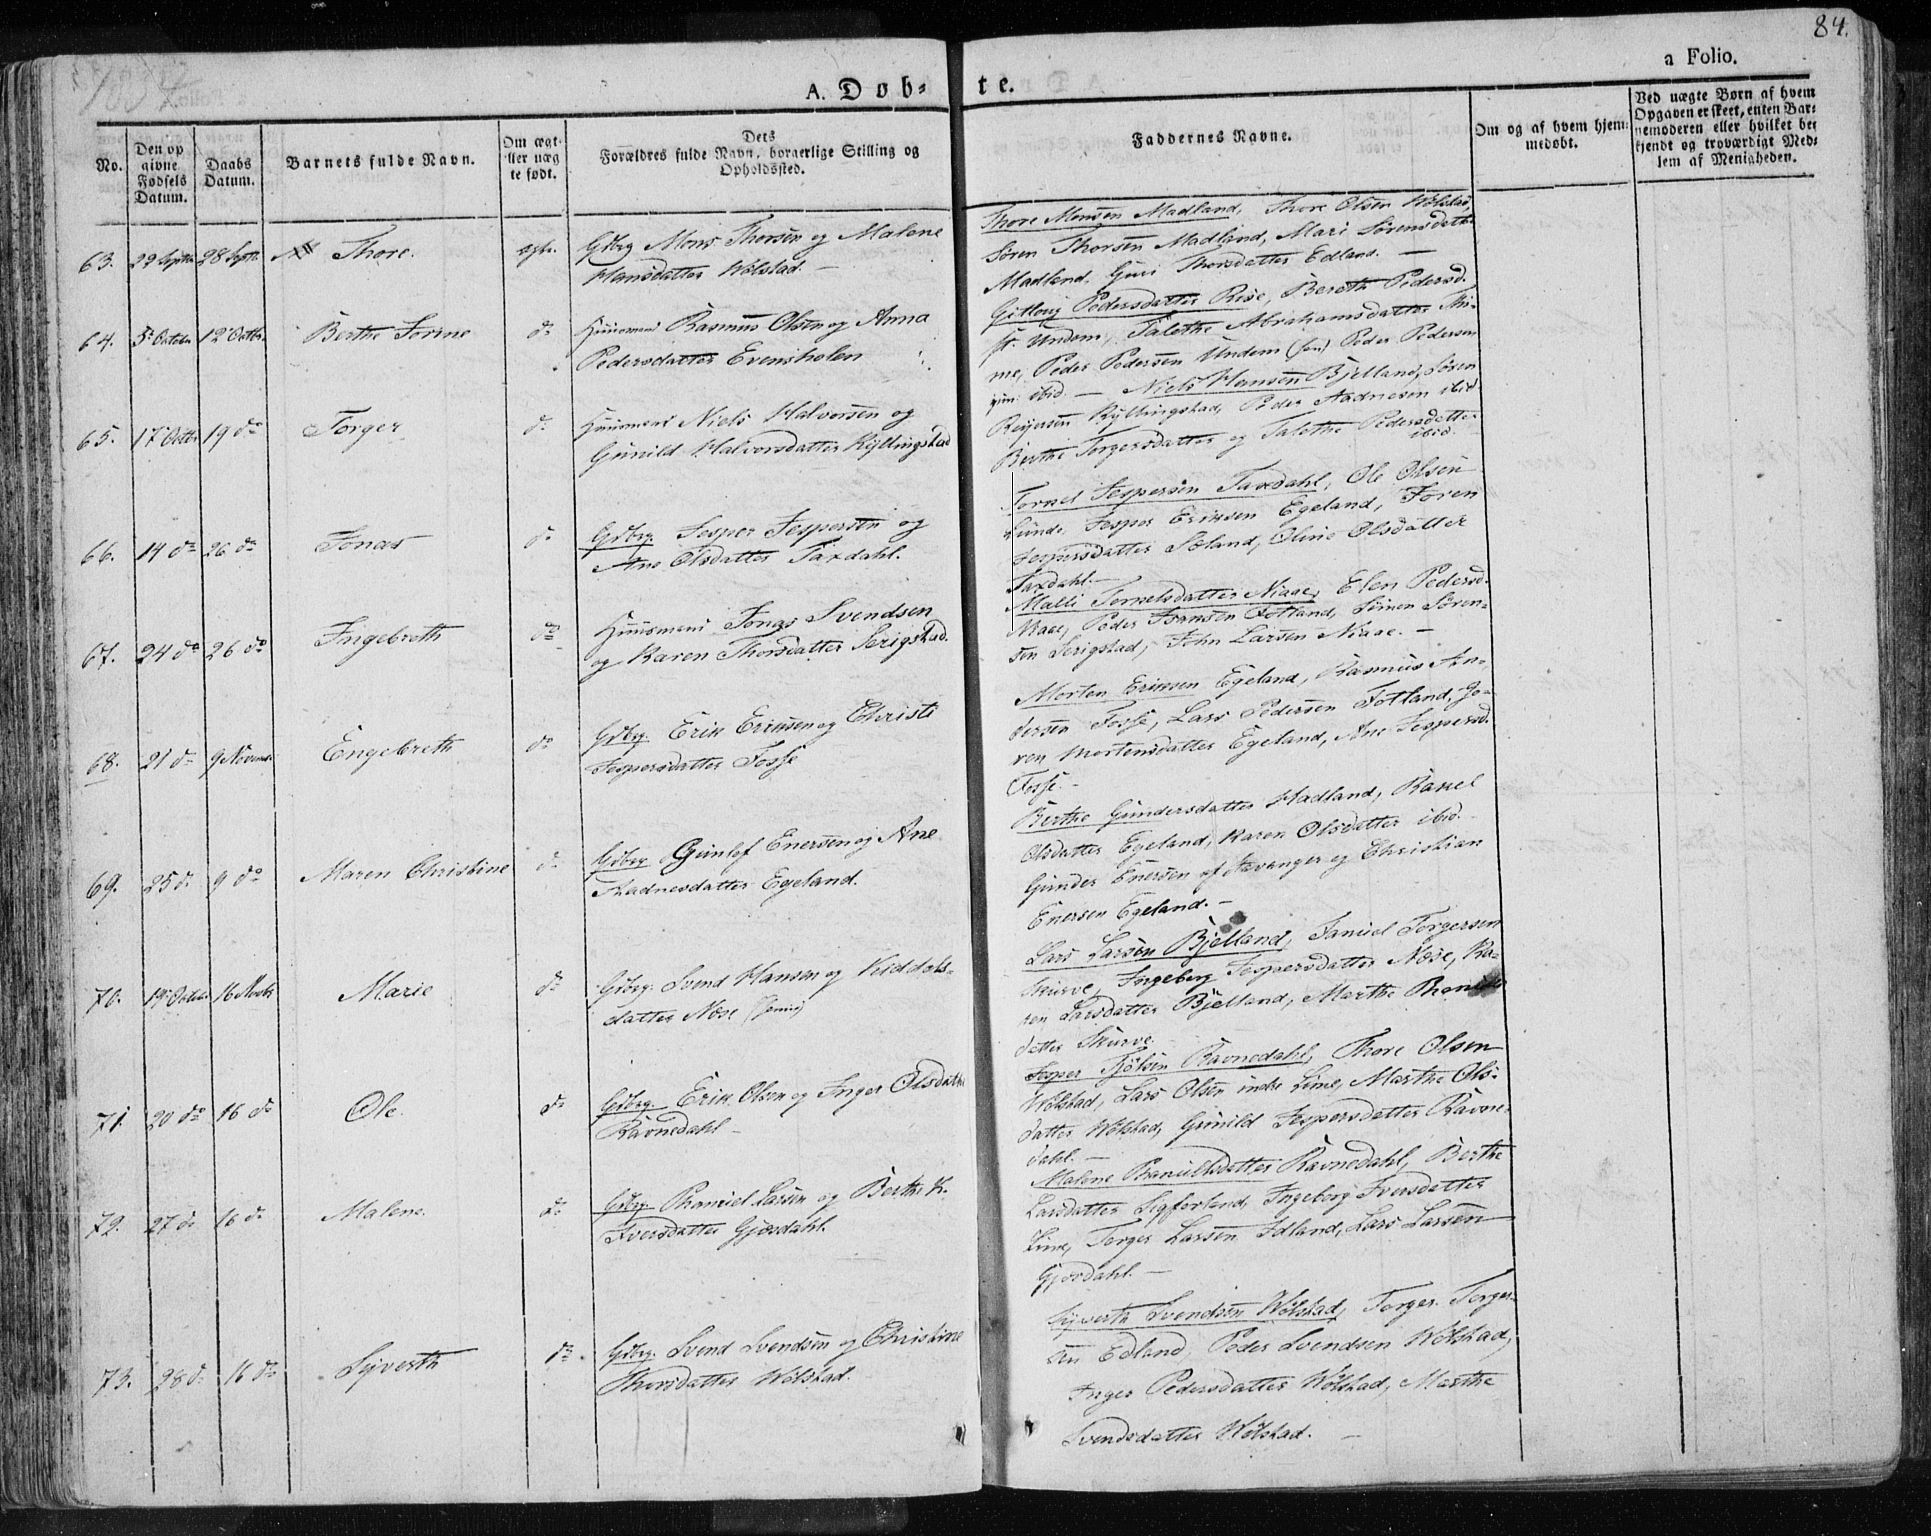 84.
a Folio.
A. Døb-
te.
No.
Den op
givne
Fødsels
Datum.
Daabs
Datum.
Barnets fulde Navn.
Om ægt
ller uæg
te født.
Dets
Forældres fulde Navn, borgerlige Stilling og
Opholdssted.
Faddernes Navne.
Om og af hvem hjem-
medøbt.
Ved uægte Børn af hvem
Opgaven er skeet, enten Bar-
nemoderen eller hvilket be
kjendt og troværdigt Med-
lem af Menigheden.
63. 22 Septbr 28 Septbr Thore. egte.
Gdbrg Mons Thorsen og Malene
Hansdatter Wølstad. —
Thore Monsen Madland, Thore Olsen Wølstad,
Søren Thorsen Madland, Mari Sørensdatter
Madland, Guri Thorsdatter Edland. —
64. 5 October 12 Octbr. Berthe Serine do
Huusmand Rasmus Olsen og Anna
Pedersdatter Evensholen
Gitlaug Pedersdatter Rise, Bereth Pedersd.
Undem, Talethe Abrahamsdatter Mi-
me, Peder Pedersen Undem (sen) Peder Pedersen
jun: ibid. —
65. 17 Octbr 19 do Torger do
Huusmand Niels Halvorsen og
Gunild Halvorsdatter Kyllingstad
Niels Hansen Bjelland, Søren
Reiersen Kyllingstad, Peder Aadnesen ibid
Berthe Torgersdatter og Talethe Pedersdatter
ibid.
66. 14 do 26 do Jonas do
Gdbrg Jesper Jespersen og
Ane Olsdatter Taxdahl.
Tornel Jespersen Taxdahl, Ole Olsen
Lunde, Jesper Eriksen Egeland, Joren
Jespersdatter Sæland, Oline Olsdatter
Taxdahl. —
67. 24 do 26 do Ingebreth do
Huusmand Jonas Svendsen
og Karen Thorsdatter Serigstad.
Malli Tornelsdatter Niaae, Elen Pedersd.
Niaae, Peder Hansen Fotland, Simen Søren-
sen Serigstad, John Larsen Niaae. —
68. 21 do 9 Novembr Engebreth do
Gdbrg. Erik Eriksen og Christi
Jespersdatter Fosse
Morten Eriksen Egeland, Rasmus An-
dersen Fosse, Lars Pedersen Fotland, Jo-
ren Mortensdatter Egeland, Ane Jespersd.
Fosse. —
69. 25 do 9 do Maren Christine do
Gdbrg Gunlef Enersen og Ane
Aadnesdatter Egeland.
Berthe Gundersdatter Hadland, Rakel
Olsdatter Egeland, Karen Olsdatter ibid.
Gunder Enersen af Stavanger og Christian
Enersen Egeland. —
70. 19 October 16 Novbr Marie do
Gdbrg. Svend Hansen og
datter Næse
Lars Larsen Bjelland, Samuel Torgersen
Skurve, Ingeborg Jespersdatter Næse, Ka-
ren Larsdatter Bjelland, Marthe
datter Skurve
71. 20 do 16 do Ole. do
Gdbrg. Erik Olsen og Inger Olsdatter
Ravnedahl —
Jesper Tjølsen Ravnedahl, Thore Olsen
Wølstad, Lars Olsen indre Lime, Marthe Ols-
datter Wølstad, Gunild Jespersdatter Ravne-
dahl. —
72. 27 do 16 do Malene. do
Gdbrg. Phanuel Larsen og Berthe K.
Iversdatter Gjesdahl.
Malene Phanuelsdatter Ravnedahl, Berthe
Larsdatter Ingeborg Iversdatter
Lime, Torger Larsen Edland, Lars Larsen
Gjesdahl. —
73. 28 do 16 do Syverth do
Gdbrg. Svend Svendsen og Christine
Thorsdatter Wølstad.
Syverth Svendsen Wølstad, Torger Torger-
sen Edland, Peder Svendsen Wølstad,
Inger Pedersdatter Wølstad, Marthe
Svendsdatter Wølstad. —